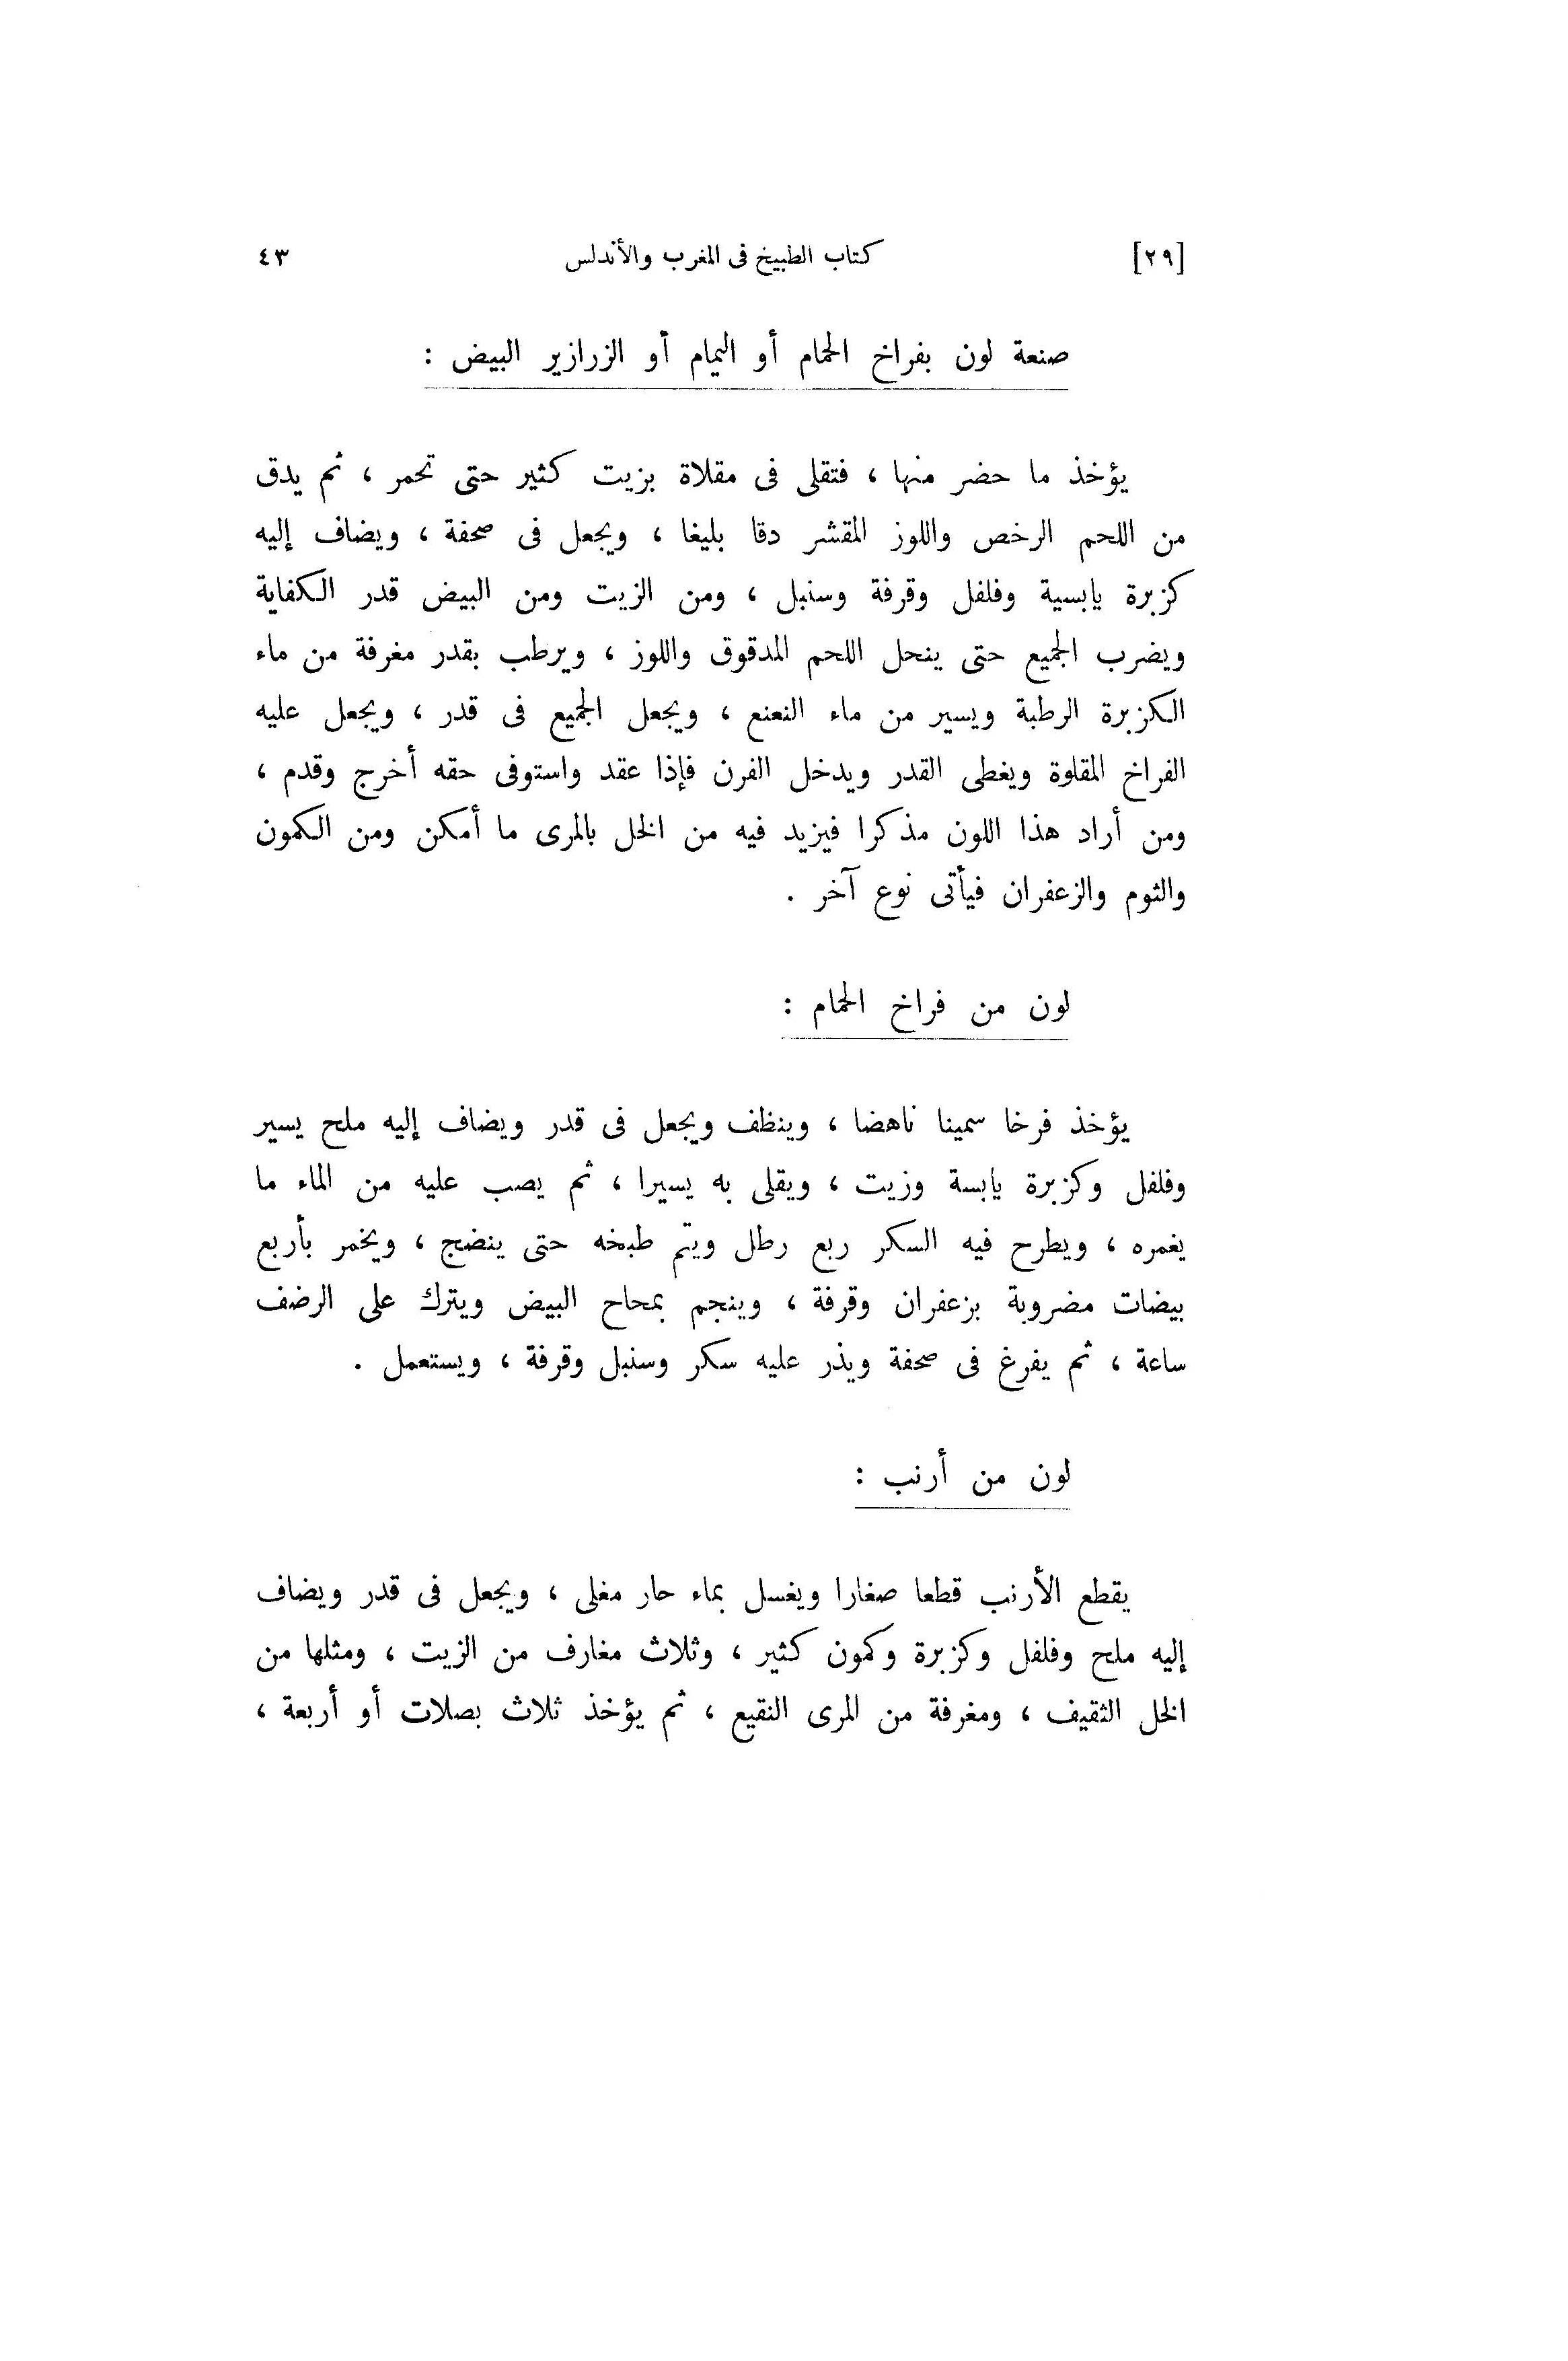 [٢٩] كتاب الطبيخ فى المغرب والأندلس ٤٣
صنعة لون بفراخ الحمام أو اليمام أو الزرازير البيض :
يؤخذ ما حضر منها ، فتقلى فى مقلاة بزيت كثير حتى تحمر ، ثم يدق
من اللحم الرخص واللوز المقشر دقا بليغا ، ويجعل فى صحفة ، ويضاف إليه
كزبرة يابسية وفلفل وقرفة وسنبل ، ومن الزيت ومن البيض قدر الكفاية
ويضرب الجميع حتى ينحل اللحم المدقوق واللوز ، ويرطب بقدر مغرفة من ماء
الكزبرة الرطبة ويسير من ماء النعنع ، ويجعل الجميع فى قدر ، ويجعل عليه
الفراخ المقلوة ويغطى القدر ويدخل الفرن فإذا عقد واستوفى حقه أخرج وقدم ،
ومن أراد هذا اللون مذكرا فيزيد فيه من الخل بالمرى ما أمكن ومن الكمون
والثوم والزعفران فيأتى نوع آخر .
لون من فراخ الحمام :
يؤخذ فرخا سمينا ناهضا ، وينظف ويجعل فى قدر ويضاف إليه ملح يسير
وفلفل وكزبرة يابسة وزيت ، ويقلى به يسيرا ، ثم يصب عليه من الماء ما
يغمره ، ويطرح فيه السكر ربع رطل ويتم طبخه حتى ينضج ، ويخمر بأربع
بيضات مضروبة بزعفران وقرفة ، وينجم بمحاح البيض ويترك على الرضف
ساعة ، ثم يفرغ فى صحفة ويذر عليه سكر وسنبل وقرفة ، ويستعمل .
لون من أرنب :
يقطع الأرنب قطعا صغارا ويغسل بماء حار مغلى ، ويجعل فى قدر ويضاف
إليه ملح وفلفل وكزبرة وكمون كثير ، وثلاث مغارف من الزيت ، ومثلها من
الخل الثقيف ، ومغرفة من المرى النقيع ، ثم يؤخذ ثلاث بصلات أو أربعة ،